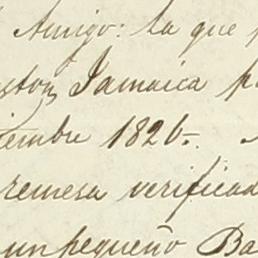 Amigo: la que
ston Jamaica p
iembre 1826.
remesa verificad
un pequeño Ba